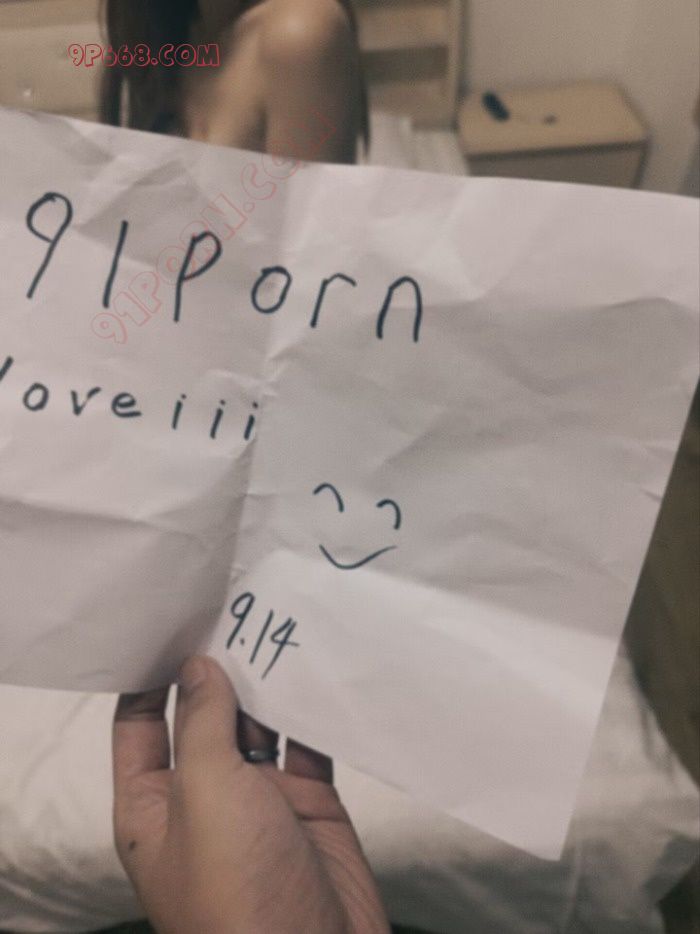 9P668.COM
91PORN.COM
91Porn
loveiii
9.14